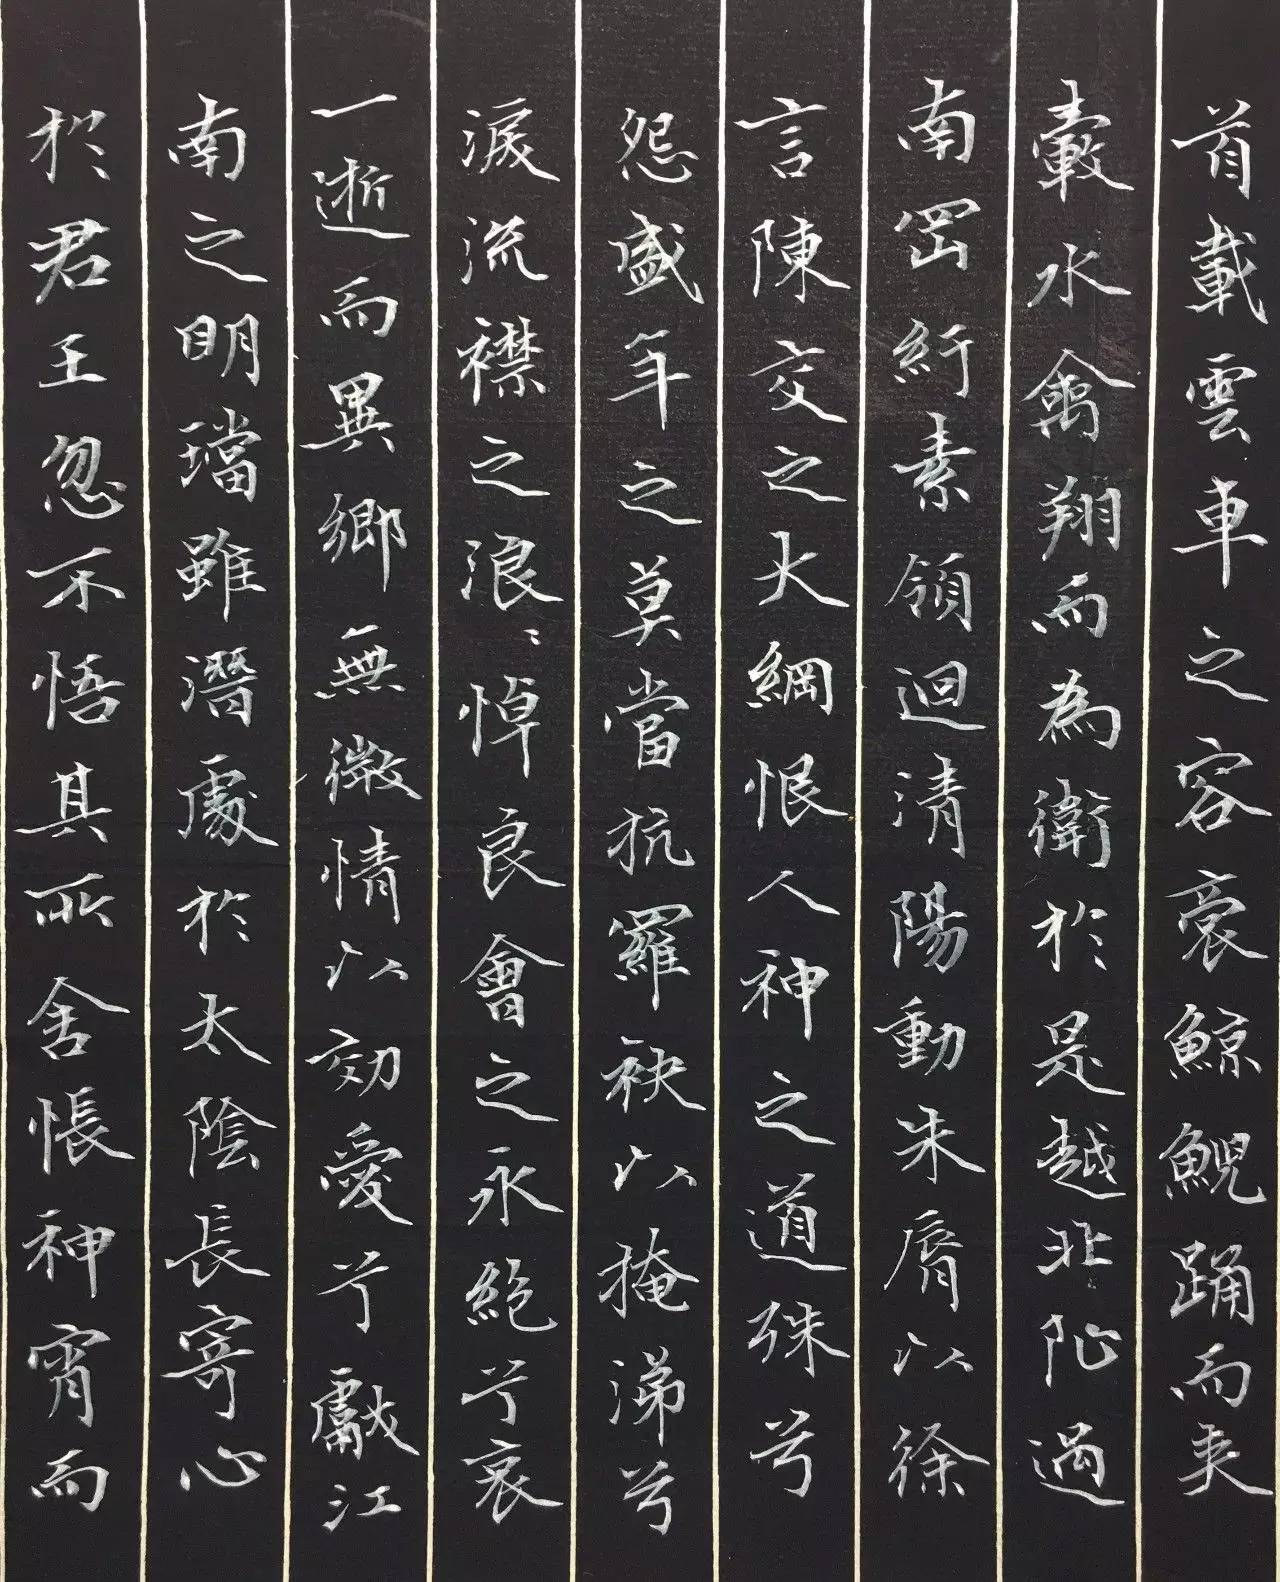 首載雲車之容裔鯨鯢踊而夾
轂水禽翔而為衛於是越北阯過
南岡紆素領迴清陽動朱脣以徐
言陳交之大綱恨人神之道殊兮
怨盛年之莫當抗羅袂以掩涕兮
淚流襟之浪〻悼良會之永絕兮哀
一逝而異鄉無微情以効愛兮獻江
南之明璫雖潛處於太陰長寄心
於君王忽不悟其所舍悵神宵而